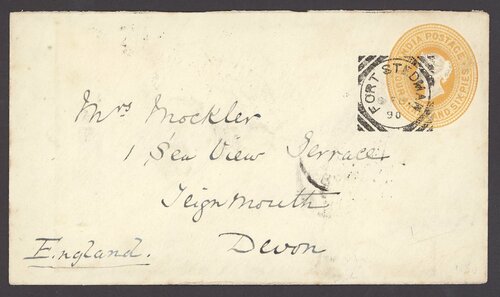 INDIA POSTAGE
AND SIX PIES
FORT STEDMAN
90
Mrs Mockler
1 Sea View Terrace
Teignmouth
Devon
England.